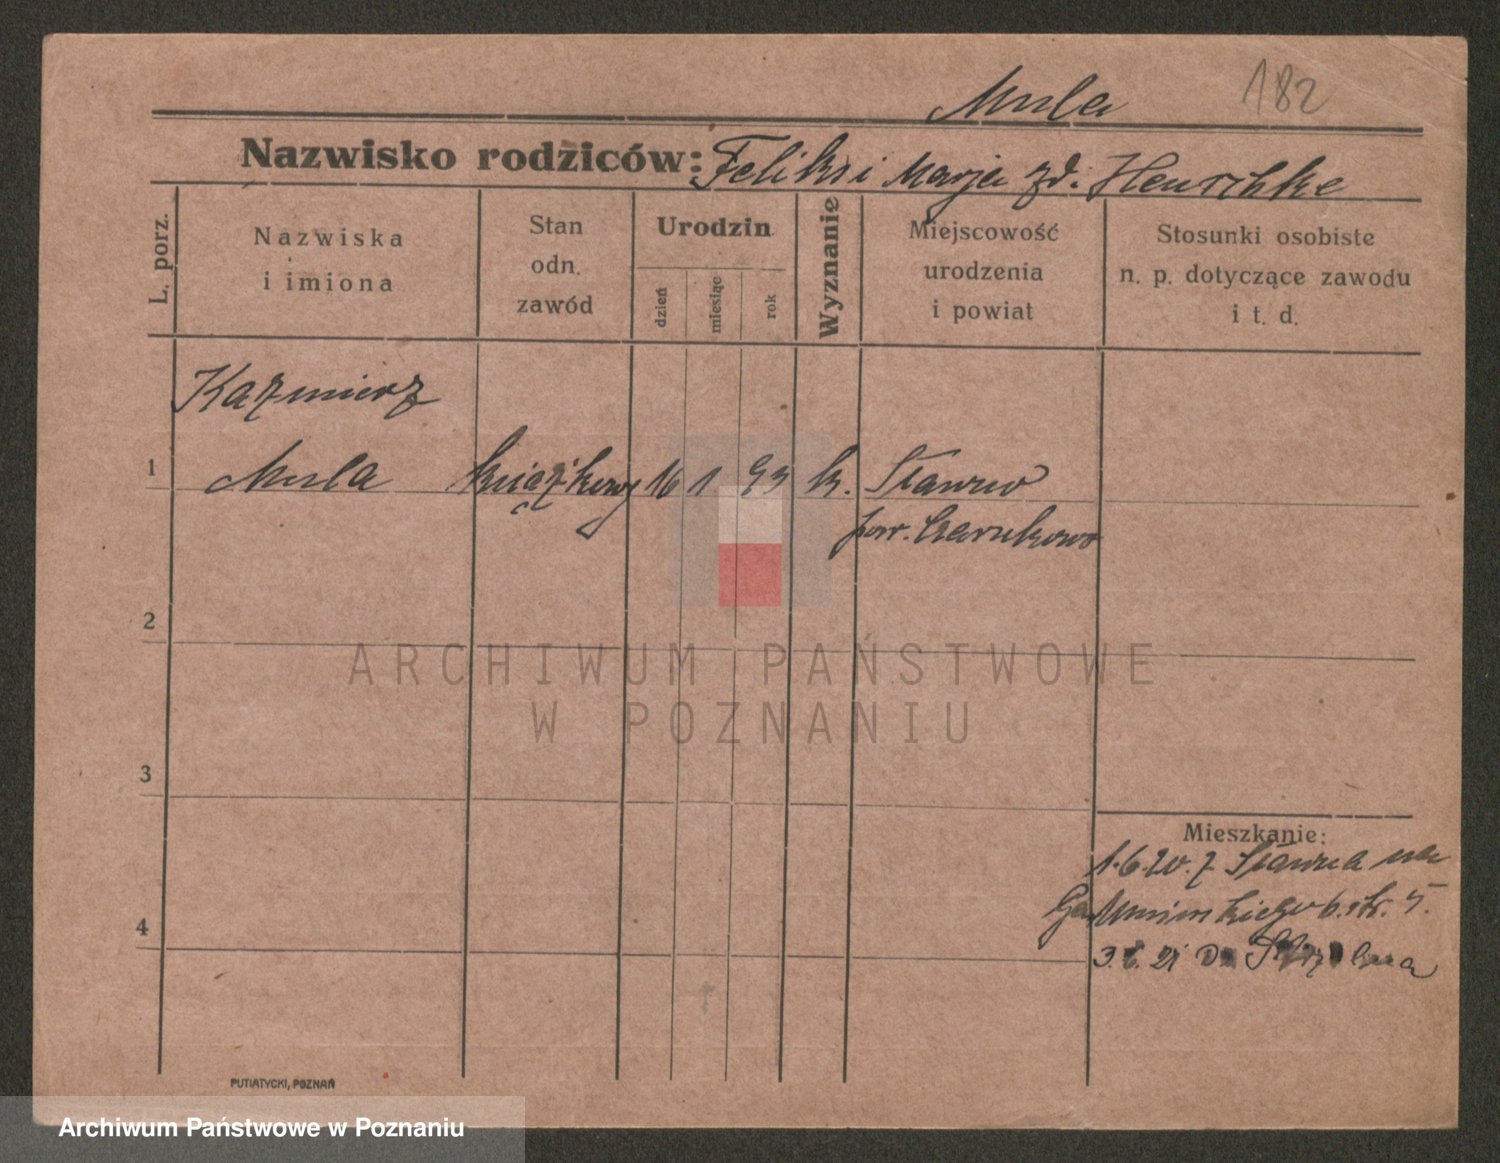 Mula 182
Nazwisko rodziców: Feliks i Marja zd. Henschke
L. porz.
Nazwiska
i imiona
Stan
odn.
zawód
Urodzin
dzień
miesiąc
rok
Wyznanie
Miejscowość
urodzenia
i powiat
Stosunki osobiste
n. p. dotyczące zawodu
i t. d.
Kazmierz
1 Mula książkowy 16 1 93 k. Sławno
pow. Czarnkowo
2
3
4
Mieszkanie:
1.6.20. z Sławna na
6. str. 5.
3. 21 Do
ARCHIWUM PAŃSTWOWE
W POZNANIU
PUTIATYCKI, POZNAŃ
Archiwum Państwowe w Poznaniu